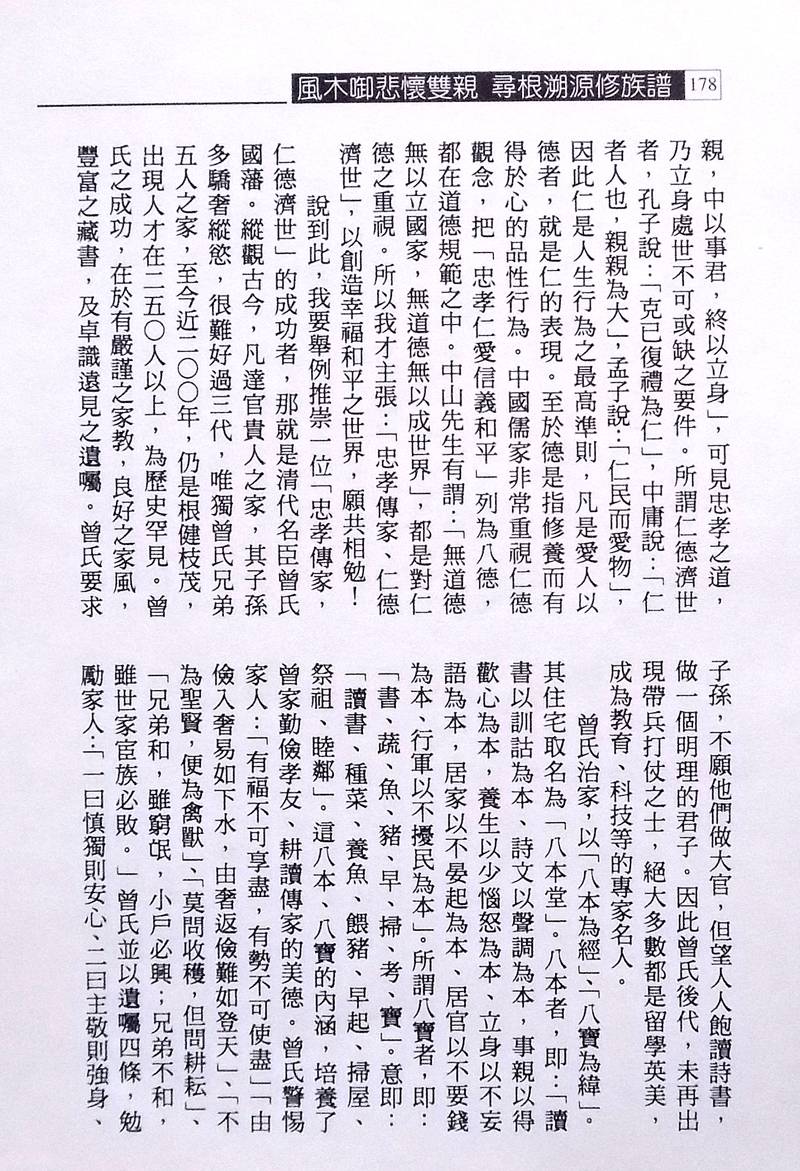 風木啣悲懷雙親 尋根溯源修族譜 178
親，中以事君，終以立身」，可見忠孝之道，
乃立身處世不可或缺之要件。所謂仁德濟世
者，孔子說：「克已復禮為仁」，中庸說：「仁
者人也，親親為大」，孟子說：「仁民而愛物」，
因此仁是人生行為之最高準則，凡是愛人以
德者，就是仁的表現。至於德是指修養而有
得於心的品性行為。中國儒家非常重視仁德
觀念，把「忠孝仁愛信義和平」列為八德，
都在道德規範之中。中山先生有謂：「無道德
無以立國家，無道德無以成世界」，都是對仁
德之重視。所以我才主張：「忠孝傳家、仁德
濟世」，以創造幸福和平之世界，願共相勉！
說到此，我要舉例推崇一位「忠孝傳家，
仁德濟世」的成功者，那就是清代名臣曾氏
國藩。縱觀古今，凡達官貴人之家，其子孫
多驕奢縱慾，很難好過三代，唯獨曾氏兄弟
五人之家，至今近二○○年，仍是根健枝茂，
出現人才在二五○人以上，為歷史罕見。曾
氏之成功，在於有嚴謹之家教，良好之家風，
豐富之藏書，及卓識遠見之遺囑。曾氏要求
子孫，不願他們做大官，但望人人飽讀詩書，
做一個明理的君子。因此曾氏後代，未再出
現帶兵打仗之士，絕大多數都是留學英美，
成為教育、科技等的專家名人。
曾氏治家，以「八本為經」、「八寶為緯」。
其住宅取名為「八本堂」。八本者，即：「讀
書以訓詁為本、詩文以聲調為本，事親以得
歡心為本，養生以少惱怒為本、立身以不妄
語為本，居家以不晏起為本、居官以不要錢
為本、行軍以不擾民為本」。所謂八寶者，即：
「書、蔬、魚、豬、早、掃、考、寶」。意即：
「讀書、種菜、養魚、餵豬、早起、掃屋、
祭祖、睦鄰」。這八本、八寶的內涵，培養了
曾家勤儉孝友、耕讀傳家的美德。曾氏警惕
家人：「有福不可享盡，有勢不可使盡」「由
儉入奢易如下水，由奢返儉難如登天」、「不
為聖賢，便為禽獸」、「莫問收穫，但問耕耘」、
「兄弟和，雖窮氓，小戶必興；兄弟不和，
雖世家宦族必敗。」曾氏並以遺囑四條，勉
勵家人：「一曰慎獨則安心、二曰主敬則強身、